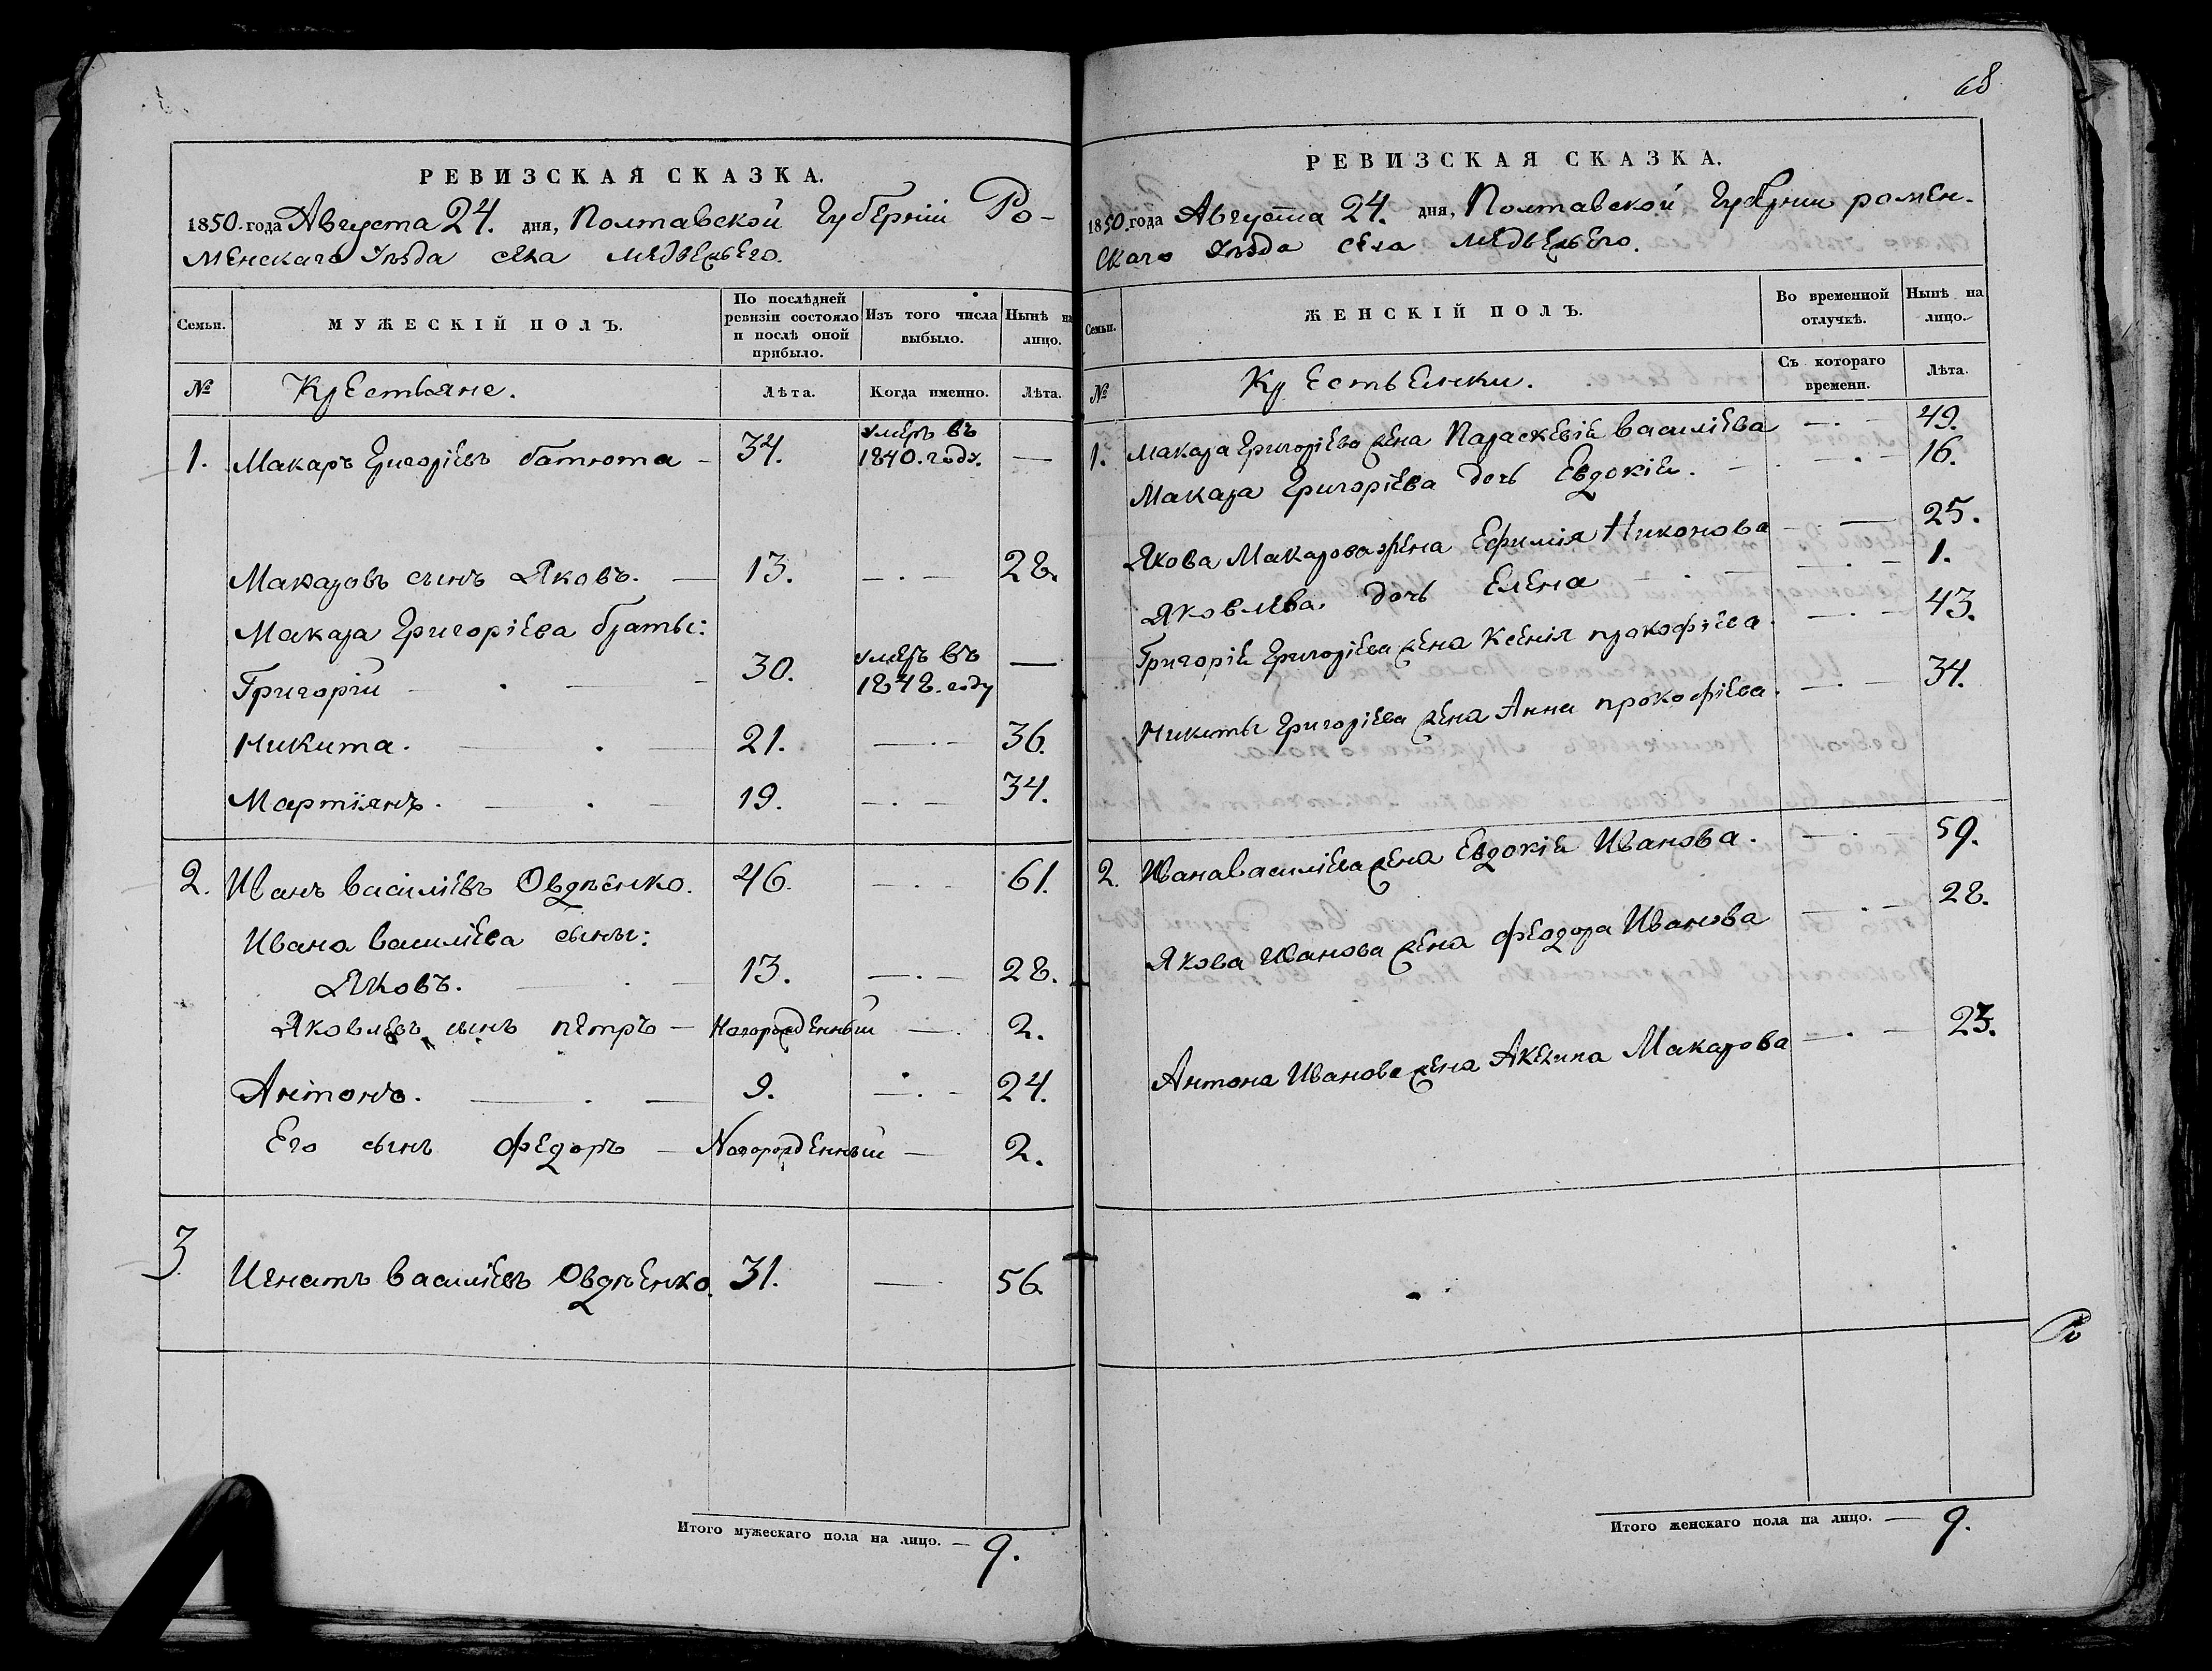 РЕВИЗСКАЯ СКАЗКА.
1850. года Августа 24. дня, Полтавской Губерніи Ро-
менскаго Уѣзда села медвежьего.
Семьи. МУЖЕСКІЙ ПОЛЪ. По послѣдней ревизіи состояло и послѣ оной прибыло. Изъ того числа выбыло. Нынѣ на лицо.
№ Крестьяне. Лѣта. Когда именно. Лѣта.
1. Макаръ Григоріевъ батюта 34. умеръ въ 1840. году. —
Макаровъ сынъ Яковъ. — 13. — . — 28.
Макара Григоріева братья:
Григорій 30. умеръ въ 1848. году —
Никита. 21. — . — 36.
Мартіянъ. 19. — . — 34.
2. Иванъ василіевъ Овдѣенко. 46. — . — 61.
Ивана василіева сыны:
Яковъ. 13. — . — 28.
Яковлевъ сынъ петръ — Новорожденный — 2.
Антонъ. 9. — . — 24.
Его сынъ Федоръ — Новорожденный — 2.
3 Игнатъ василіевъ Овдѣенко. 31. — 56.
Итого мужескаго пола на лицо. — 9.
68
РЕВИЗСКАЯ СКАЗКА.
1850. года Августа 24. дня, Полтавской Губерніи ромен-
скаго Уѣзда села медвежьего.
Семьи. ЖЕНСКІЙ ПОЛЪ. Во временной отлучкѣ. Нынѣ на лицо.
№ Крестьянки. Съ котораго времени. Лѣта.
1. Макара Григоріева жена Параскевія василіева — . — 49.
Макара Григоріева дочь Евдокія. — . — 16.
Якова Макарова жена Ефимія Никонова — . — 25.
Яковлева дочь Елена — . — 1.
Григорія Григоріева жена Ксенія прокофіева. — . — 43.
Никиты Григоріева жена Анна прокофіева. — . — 34.
2. Ивана василіева жена Евдокія Иванова. — . — 59.
Якова Иванова жена феодора Иванова — . — 28.
Антона Иванова жена Акилина Макарова — . — 23.
Ро
Итого женскаго пола на лицо. — 9.